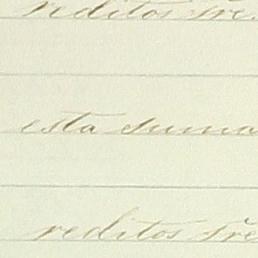 reditos fre
esta suma
reditos fre